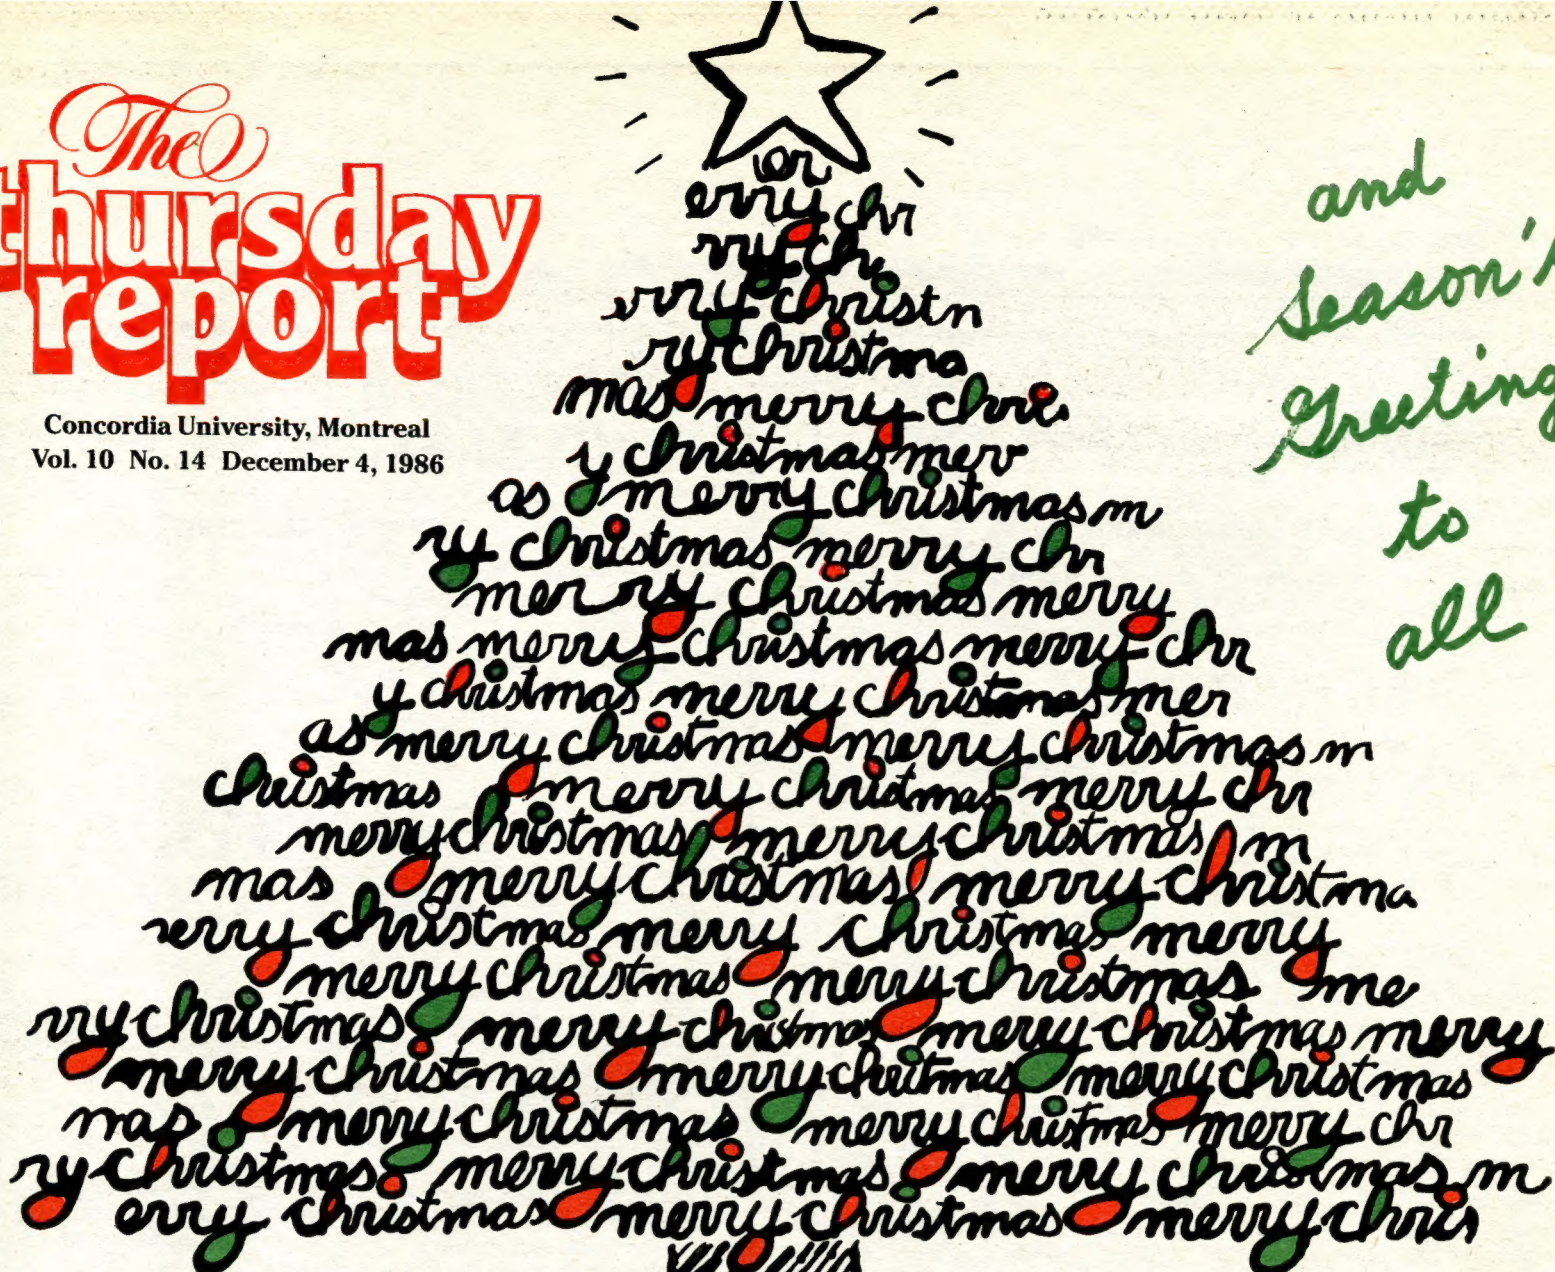 The
thursday
report
Concordia University, Montreal
Vol. 10 No. 14 December 4, 1986
and
Season's
Greeting
to
all
er
erry chr
rry chr
erry christn
ry christma
mas merry chris
y christmas merr
as merry christmas m
ry christmas merry chr
merry christmas merry
mas merry christmas merry chr
y christmas merry christmas mer
as merry christmas merry christmas m
christmas merry christmas merry chr
merry christmas merry christmas m
mas merry christmas merry christma
erry christmas merry christmas merry
merry christmas merry christmas me
rry christmas merry christmas merry christmas merry
merry christmas merry christmas merry christmas
mas merry christmas merry christmas merry chr
ry christmas merry christmas merry christmas m
erry christmas merry christmas merry chris